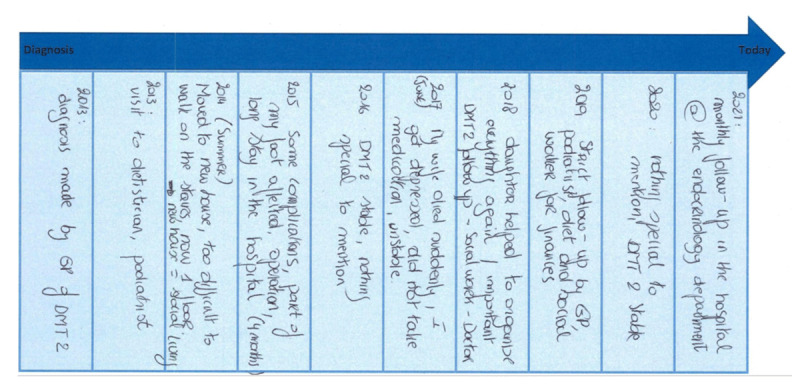 Diagnosis
Today
2013:
diagnosis made by GP of DMT2
2013:
visit to dietistian, podiatrist
2014 (Summer)
Moved to new house, too difficult to
walk on the staires, now 1 floor.
new house = social living
2015 Some complications, part of
my foot affected, operation,
long stay in the hospital (4 months)
2016 DMT2 stable, nothing
special to mention
2017 My wife died suddenly, I
(June) get depressed, did not take
medication, unstable
2018 daughter helped to organize
everything again, important
DMT2 follow up - Social worker - Doctor
2019 Strict follow-up by GP,
podiatist, diet and social
worker for finances
2020: nothing special to
mention, DMT2 stable
2021:
monthly follow-up in the hospital
@ the endocrinology department